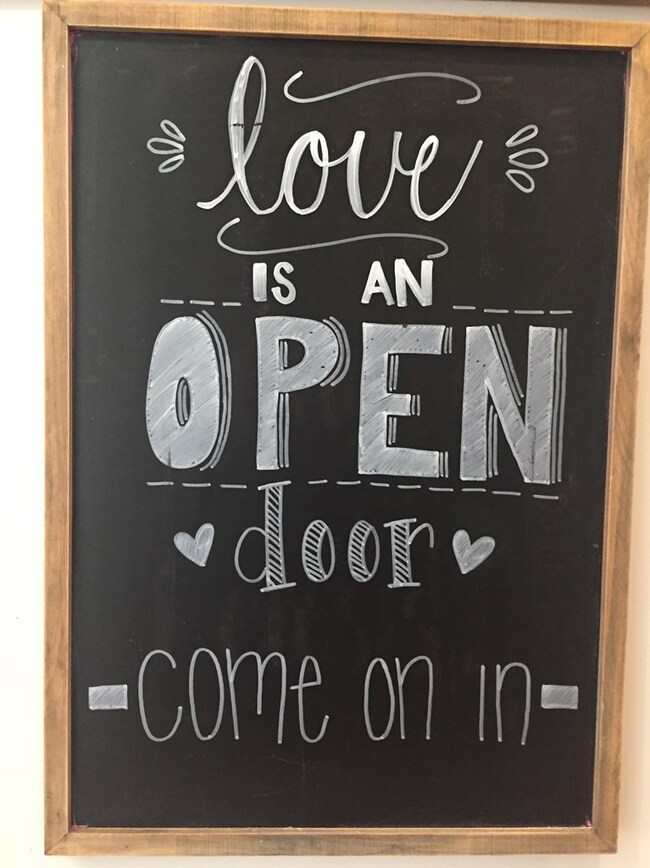 love
IS AN
OPEN
door
come on in